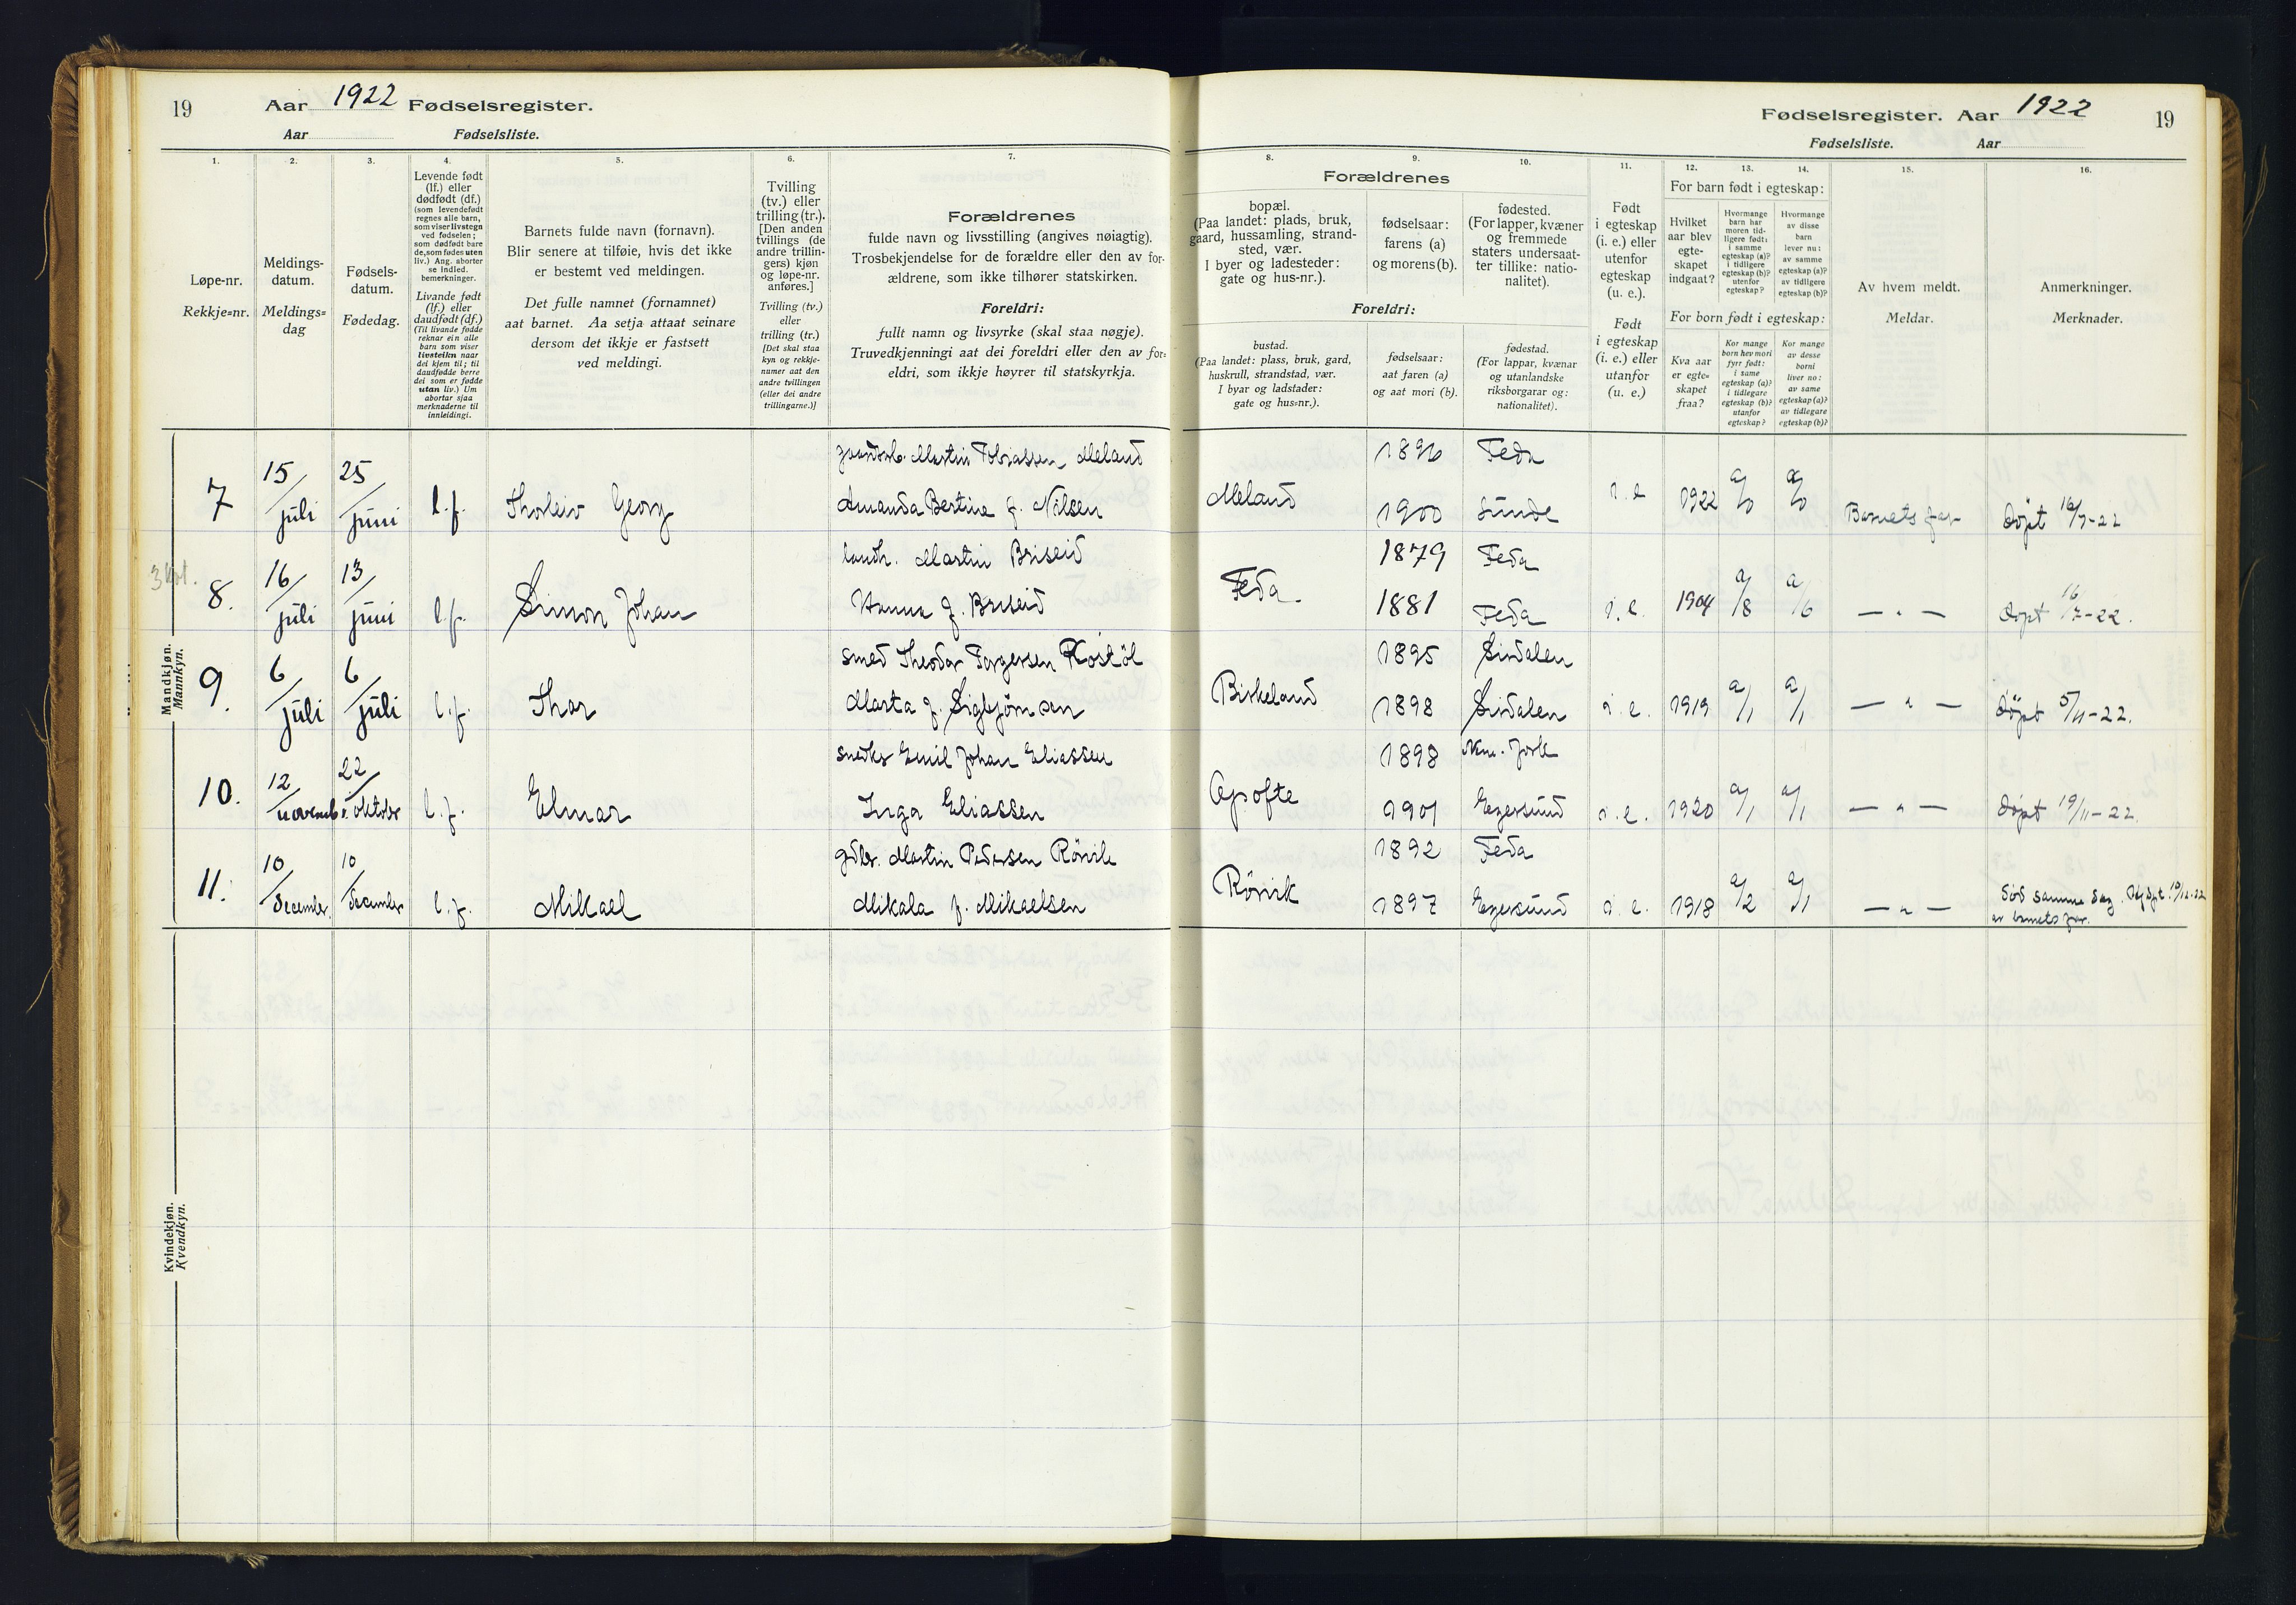 19
Aar 1922 Fødselsregister.
Aar Fødselsliste.
1.
2.
3.
4.
5.
6.
7.
Løpe-nr.
Rekkje=nr.
Meldings-
datum.
Meldings=
dag
Fødsels-
datum.
Fødedag.
Levende født
(lf.) eller
dødfødt (df.)
(som levendefødt
regnes alle barn,
som viser livstegn
ved fødselen;
som dødfødt bare
de, som fødes uten
liv.) Ang. aborter
se indled.
bemerkninger.
Livande født
(lf.) eller
daudfødt (df.)
(Til livande fødde
reknar ein alle
barn som viser
livsteikn naar
dei kjem til; til
daudfødde berre
dei som er fødde
utan liv.) Um
abortar sjaa
merknaderne til
innleidingi.
Barnets fulde navn (fornavn).
Blir senere at tilføie, hvis det ikke
er bestemt ved meldingen.
Det fulle namnet (fornamnet)
aat barnet. Aa setja attaat seinare
dersom det ikkje er fastsett
ved meldingi.
Tvilling
(tv.) eller
trilling (tr.).
[Den anden
tvillings (de
andre trillin-
gers) kjøn
og løpe-nr.
anføres.]
Tvilling (tv.)
eller
trilling (tr.)
[Det skal staa
kyn og rekkje-
numer aat den
andre tvillingen
(eller dei andre
trillingarne.)]
Forældrenes
fulde navn og livsstilling (angives nøiagtig).
Trosbekjendelse for de forældre eller den av for-
ældrene, som ikke tilhører statskirken.
Foreldri:
fullt namn og livsyrke (skal staa nøgje).
Truvedkjenningi aat dei foreldri eller den av for=
eldri, som ikkje høyrer til statskyrkja.
Mandkjøn.
Mannkyn.
7 15/juli 25/juni l.f. Thorleiv Georg
Martin Tobiassen Meland
Amanda Bertine f. Nilsen
8. 16/juli 13/juni l.f. Simon Johan
Martin Briseid
Hanna f. Briseid
9. 6/juli 6/juli l.f. Thor
smed Theodor Torgersen Rostöl
Marta f. Sigbjörnsen
10. 12/novemb. 22/oktober l.f. Elmar
Emil Johan Eliassen
Inga Eliassen
11. 10/december. 10/december l.f. Mikael
gdbr. Martin Pedersen Rörvik
Mikala f. Mikaelsen
Kvindekjøn.
Kvendkyn.
Fødselsregister. Aar 1922
19
Fødselsliste. Aar
8.
9.
10.
11.
12.
13.
14.
15.
16.
Forældrenes
bopæl.
(Paa landet: plads, bruk,
gaard, hussamling, strand-
sted, vær.
I byer og ladesteder:
gate og hus-nr.).
fødselsaar:
farens (a)
og morens (b).
fødested.
(For lapper, kvæner
og fremmede
staters undersaat-
ter tillike: natio-
nalitet).
Foreldri:
bustad.
(Paa landet: plass, bruk, gard,
huskrull, strandstad, vær.
I byar og ladstader:
gate og hus=nr.).
fødselsaar:
aat faren (a)
og aat mori (b).
fødestad.
(For lappar, kvænar
og utanlandske
riksborgarar og:
nationalitet).
Født
i egteskap
(i. e.) eller
utenfor
egteskap
(u. e.).
Født
i egteskap
(i. e.) eller
utanfor
(u. e.)
For barn født i egteskap:
Hvilket
aar blev
egte-
skapet
indgaat?
Hvormange
barn har
moren tid-
ligere født:
i samme
egteskap (a)?
i tidligere
egteskap (b)?
utenfor
egteskap?
Hvormange
av disse
barn
lever nu:
av samme
egteskap (a)?
av tidligere
egteskap (b)?
For born født i egteskap:
Kva aar
er egte-
skapet
fraa?
Kor mange
born hev mori
fyrr født:
i same
egteskap (a)?
i tidlegare
egteskap (b)?
utanfor
egteskap?
Kor mange
av desse
borni
liver no:
av same
egteskap (a)?
av tidlegare
egteskap (b)?
Av hvem meldt.
Meldar.
Anmerkninger.
Merknader.
1896 Feda
Meland 1900 Sunde i e 1922 a/0 a/0 Barnets far Döpt 16/7-22
1879 Feda
Feda 1881 Feda i. e. 1904 a/8 a/6 — " — Döpt 16/7-22.
1895 Sirdalen
Birkeland 1898 Sirdalen i. e. 1919 a/1 a/1 — " — Döpt 5/11-22.
1898
Apofte 1901 Egersund i. e. 1920 a/1 a/1 — " — Döpt 19/11-22.
1892 Feda
Rörvik 1897 Egersund i. e. 1918 a/2 a/1 — " — Död samme dag. 10/12-22
av barnets far.